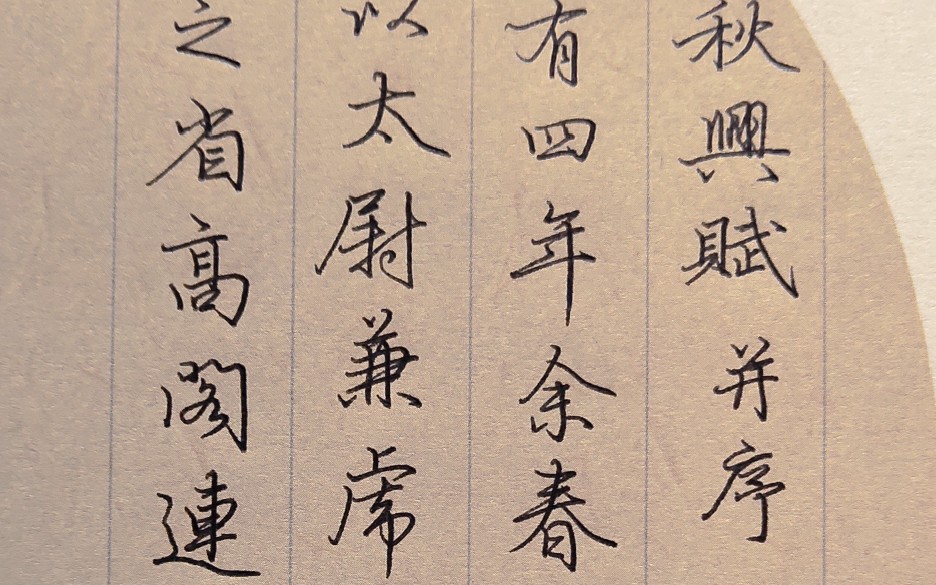 秋興賦并序
有四年余春
以太尉兼虎
之省高閣連